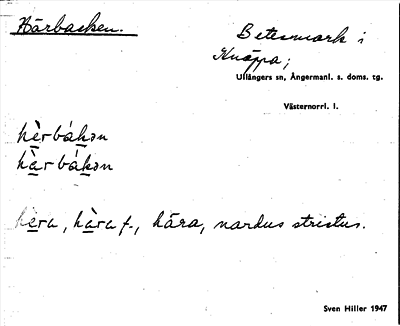 Hårbacken.
Betesmark i
Knäppa;
Ullångers sn, Ångermanl. s. doms. tg.
Västernorrl. l.
hèrbákən
hàrbákən
hèra, hàra f., håra, nardus strictus.
Sven Hiller 1947